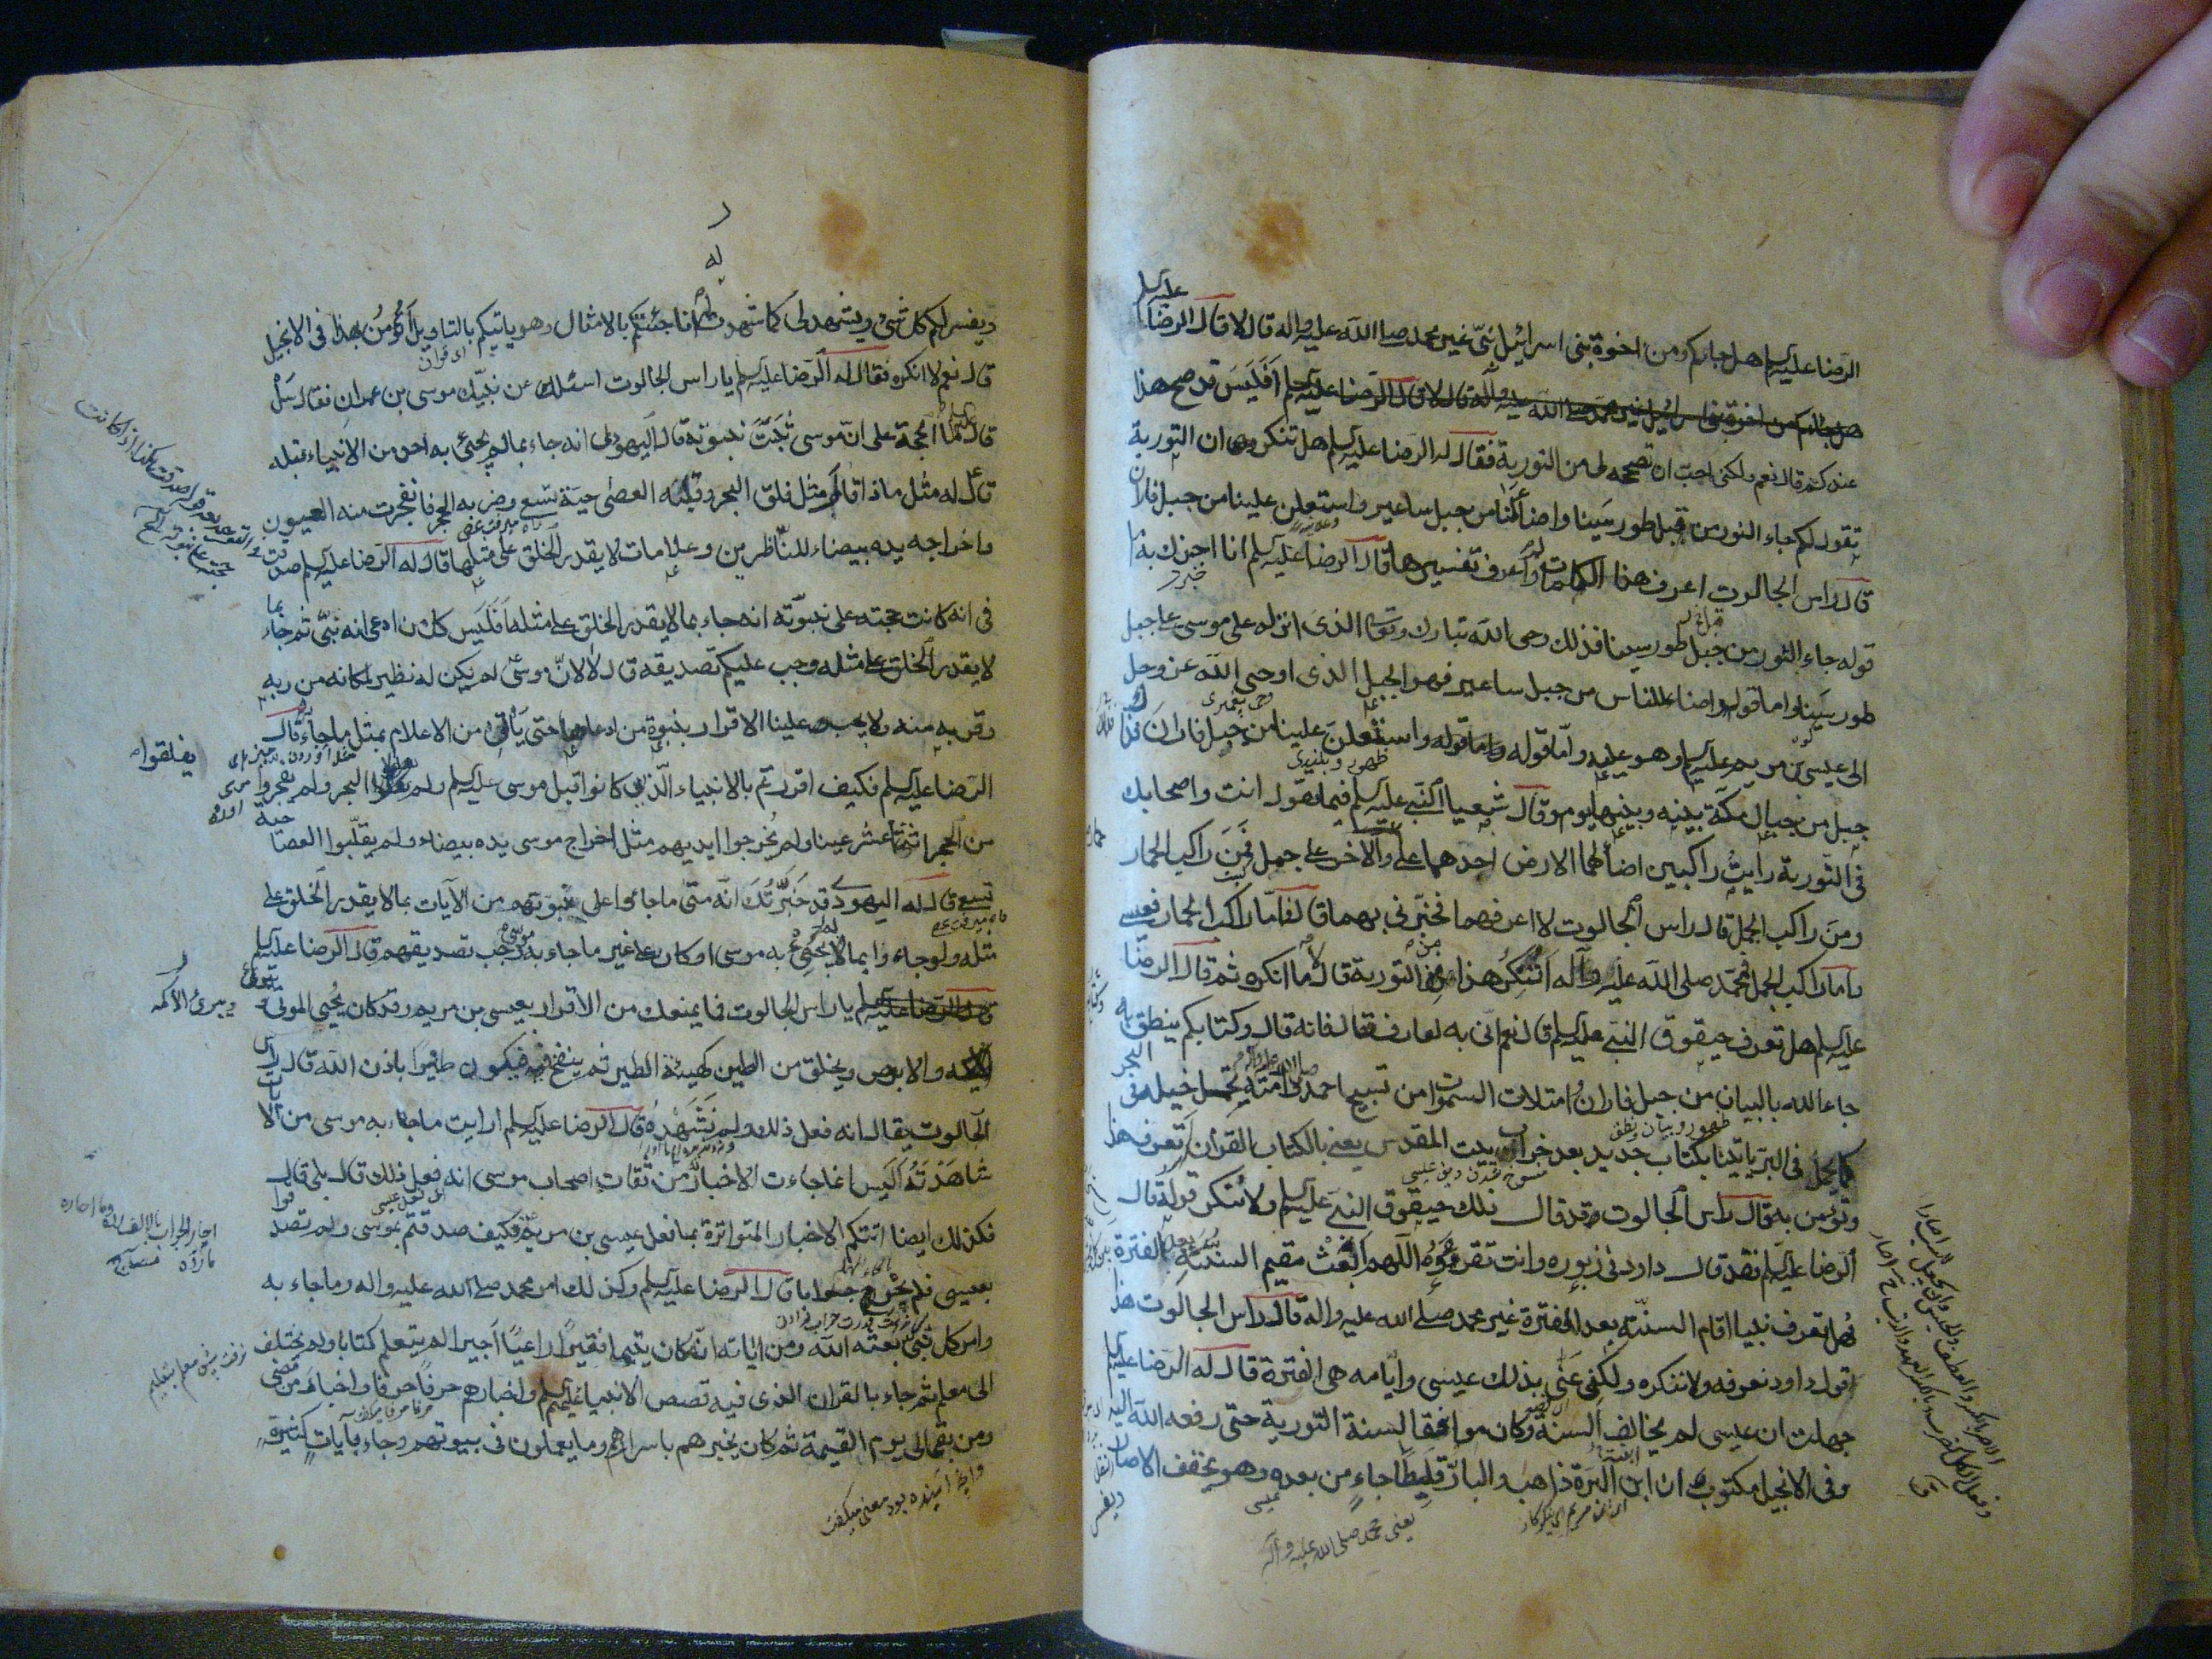 الرضا عليه السلم هل جاءكم من اخوة بنى اسرائيل نبى غير محمد صلى الله عليه واله قال لا قال الرضا عليه السلم
هل جاءكم من اخوة بنى اسرائيل نبى غير محمد صلى الله عليه وآله قال لا قال الرضا عليه السلم افليس قد صح هذا
عندكم قال نعم ولكنى احب ان تصححه لى من التورية فقال له الرضا عليه السلم هل تنكرون ان التورية
تقول لكم جاء النور من قبل طور سينا واضاء لنا من جبل ساعير واستعلن علينا من جبل فاران
قال راس الجالوت اعرف هذا الكلمات وما اعرف تفسيرها قال الرضا عليه السلم انا اخبرك به اما
قوله جاء النور من جبل طور سينا فذلك وحى الله تبارك وتعالى الذى انزله على موسى على جبل
طور سينا واما قوله واضاء للناس من جبل ساعير فهو الجبل الذى اوحى الله عز وجل
الى عيسى بن مريم عليه السلم وهو عليه واما قوله واستعلن علينا من جبل فاران فذلك
جبل من جبال مكة بينه وبينها يوم وقال شعيا النبى عليه السلم فيما تقول انت واصحابك
فى التورية رايت راكبين اضاء لهما الارض احدهما على حمار والاخر على جمل فمن راكب الحمار
ومن راكب الجمل قال راس الجالوت لا اعرفهما فخبرنى بهما قال اما راكب الحمار فعيسى
واما راكب الجمل فمحمد صلى الله عليه وآله اتنكر هذا من التورية قال لا ما انكره ثم قال الرضا
عليه السلم هل تعرف حيقوق النبى عليه السلم قال نعم انى به لعارف فقال فانه قال وكتابكم ينطق به
جاء الله بالبيان من جبل فاران امتلات السموات من تسبيح احمد وامته يحمل خيله فى البحر
كما يحمل فى البر ياتينا بكتاب جديد بعد خراب بيت المقدس يعنى بالكتاب القرآن اتعرف هذا
وتؤمن به قال راس الجالوت قد قال ذلك حيقوق النبى عليه السلم ولا ننكر قوله قال
الرضا عليه السلم فقد قال داود فى زبوره وانت تقرؤه اللهم ابعث مقيم السنة بعد الفترة
فهل تعرف نبيا اقام السنة بعد الفترة غير محمد صلى الله عليه واله قال راس الجالوت هذا
قول داود نعرفه ولا ننكره ولكن عنى بذلك عيسى وايامه هى الفترة قال له الرضا عليه السلم
جهلت ان عيسى لم يخالف السنة وكان موافقا لسنة التورية حتى رفعه الله اليه
وفى الانجيل مكتوب ان ابن البرة ذاهب والبارقليطا جاء من بعده وهو يخفف الاصار
ويفسر
يعنى محمد صلى الله عليه وآله
ويفسر لكم كل شىء ويشهد لى كما شهدت له انا جئتكم بالامثال وهو ياتيكم بالتاويل اتؤمن بهذا فى الانجيل
قال نعم لا انكره فقال له الرضا عليه السلم يا راس الجالوت اسئلك عن نبيك موسى بن عمران فقال سل
قال ما الحجة على ان موسى ثبتت نبوته قال اليهودى انه جاء بما لم يجئ به احد من الانبياء قبله
قال له مثل ماذا قال مثل فلق البحر وقلبه العصى حية تسعى وضربه الحجر فانفجرت منه العيون
واخراجه يده بيضاء للناظرين وعلامات لا يقدر الخلق على مثلها قال له الرضا عليه السلم صدقت
فى انه كانت حجته على نبوته انه جاء بما لا يقدر الخلق على مثله افليس كل من ادعى انه نبى ثم جاء بما
لا يقدر الخلق على مثله وجب عليكم تصديقه قال لا لان موسى لم يكن له نظير لمكانه من ربه
وقربه منه ولا يجب علينا الاقرار بنبوة من ادعاها حتى ياتى من الاعلام بمثل ما جاء قال
الرضا عليه السلم فكيف اقررتم بالانبياء الذين كانوا قبل موسى عليه السلم ولم يفلقوا البحر ولم يفجروا
من الحجر اثنتا عشر عينا ولم يخرجوا ايديهم مثل اخراج موسى يده بيضاء ولم يقلبوا العصا حية
تسعى قال له اليهودى قد خبرتك انه متى ما جاؤا على نبوتهم من الآيات بما لا يقدر الخلق على
مثله ولو جاءوا بما لم يجئ به موسى او كان على غير ما جاء به موسى وجب تصديقهم قال الرضا عليه السلم
يا راس الجالوت فما يمنعك من الاقرار بعيسى بن مريم وقد كان يحيى الموتى ويبرئ الاكمه
والابرص ويخلق من الطين كهيئة الطير ثم ينفخ فيه فيكون طيرا باذن الله قال راس
الجالوت يقال انه فعل ذلك ولم نشهده قال الرضا عليه السلم ارايت ما جاء به موسى من الايات
شاهدته اليس انما جاءت الاخبار من ثقات اصحاب موسى انه فعل ذلك قال بلى قال
فكذلك ايضا اتتكم الاخبار المتواترة بما فعل عيسى بن مريم فكيف صدقتم بموسى ولم تصدقوا
بعيسى فلم يحر جوابا قال الرضا عليه السلم وكذلك امر محمد صلى الله عليه واله وما جاء به
وامر كل نبى بعثه الله ومن اياته انه كان يتيما فقيرا راعيا اجيرا لم يتعلم كتابا ولم يختلف
الى معلم ثم جاء بالقران الذى فيه قصص الانبياء عليهم السلم واخبارهم حرفا حرفا واخبار من مضى
ومن بقى الى يوم القيمة ثم كان يخبرهم باسرارهم وما يعملون فى بيوتهم وجاء بايات كثيرة